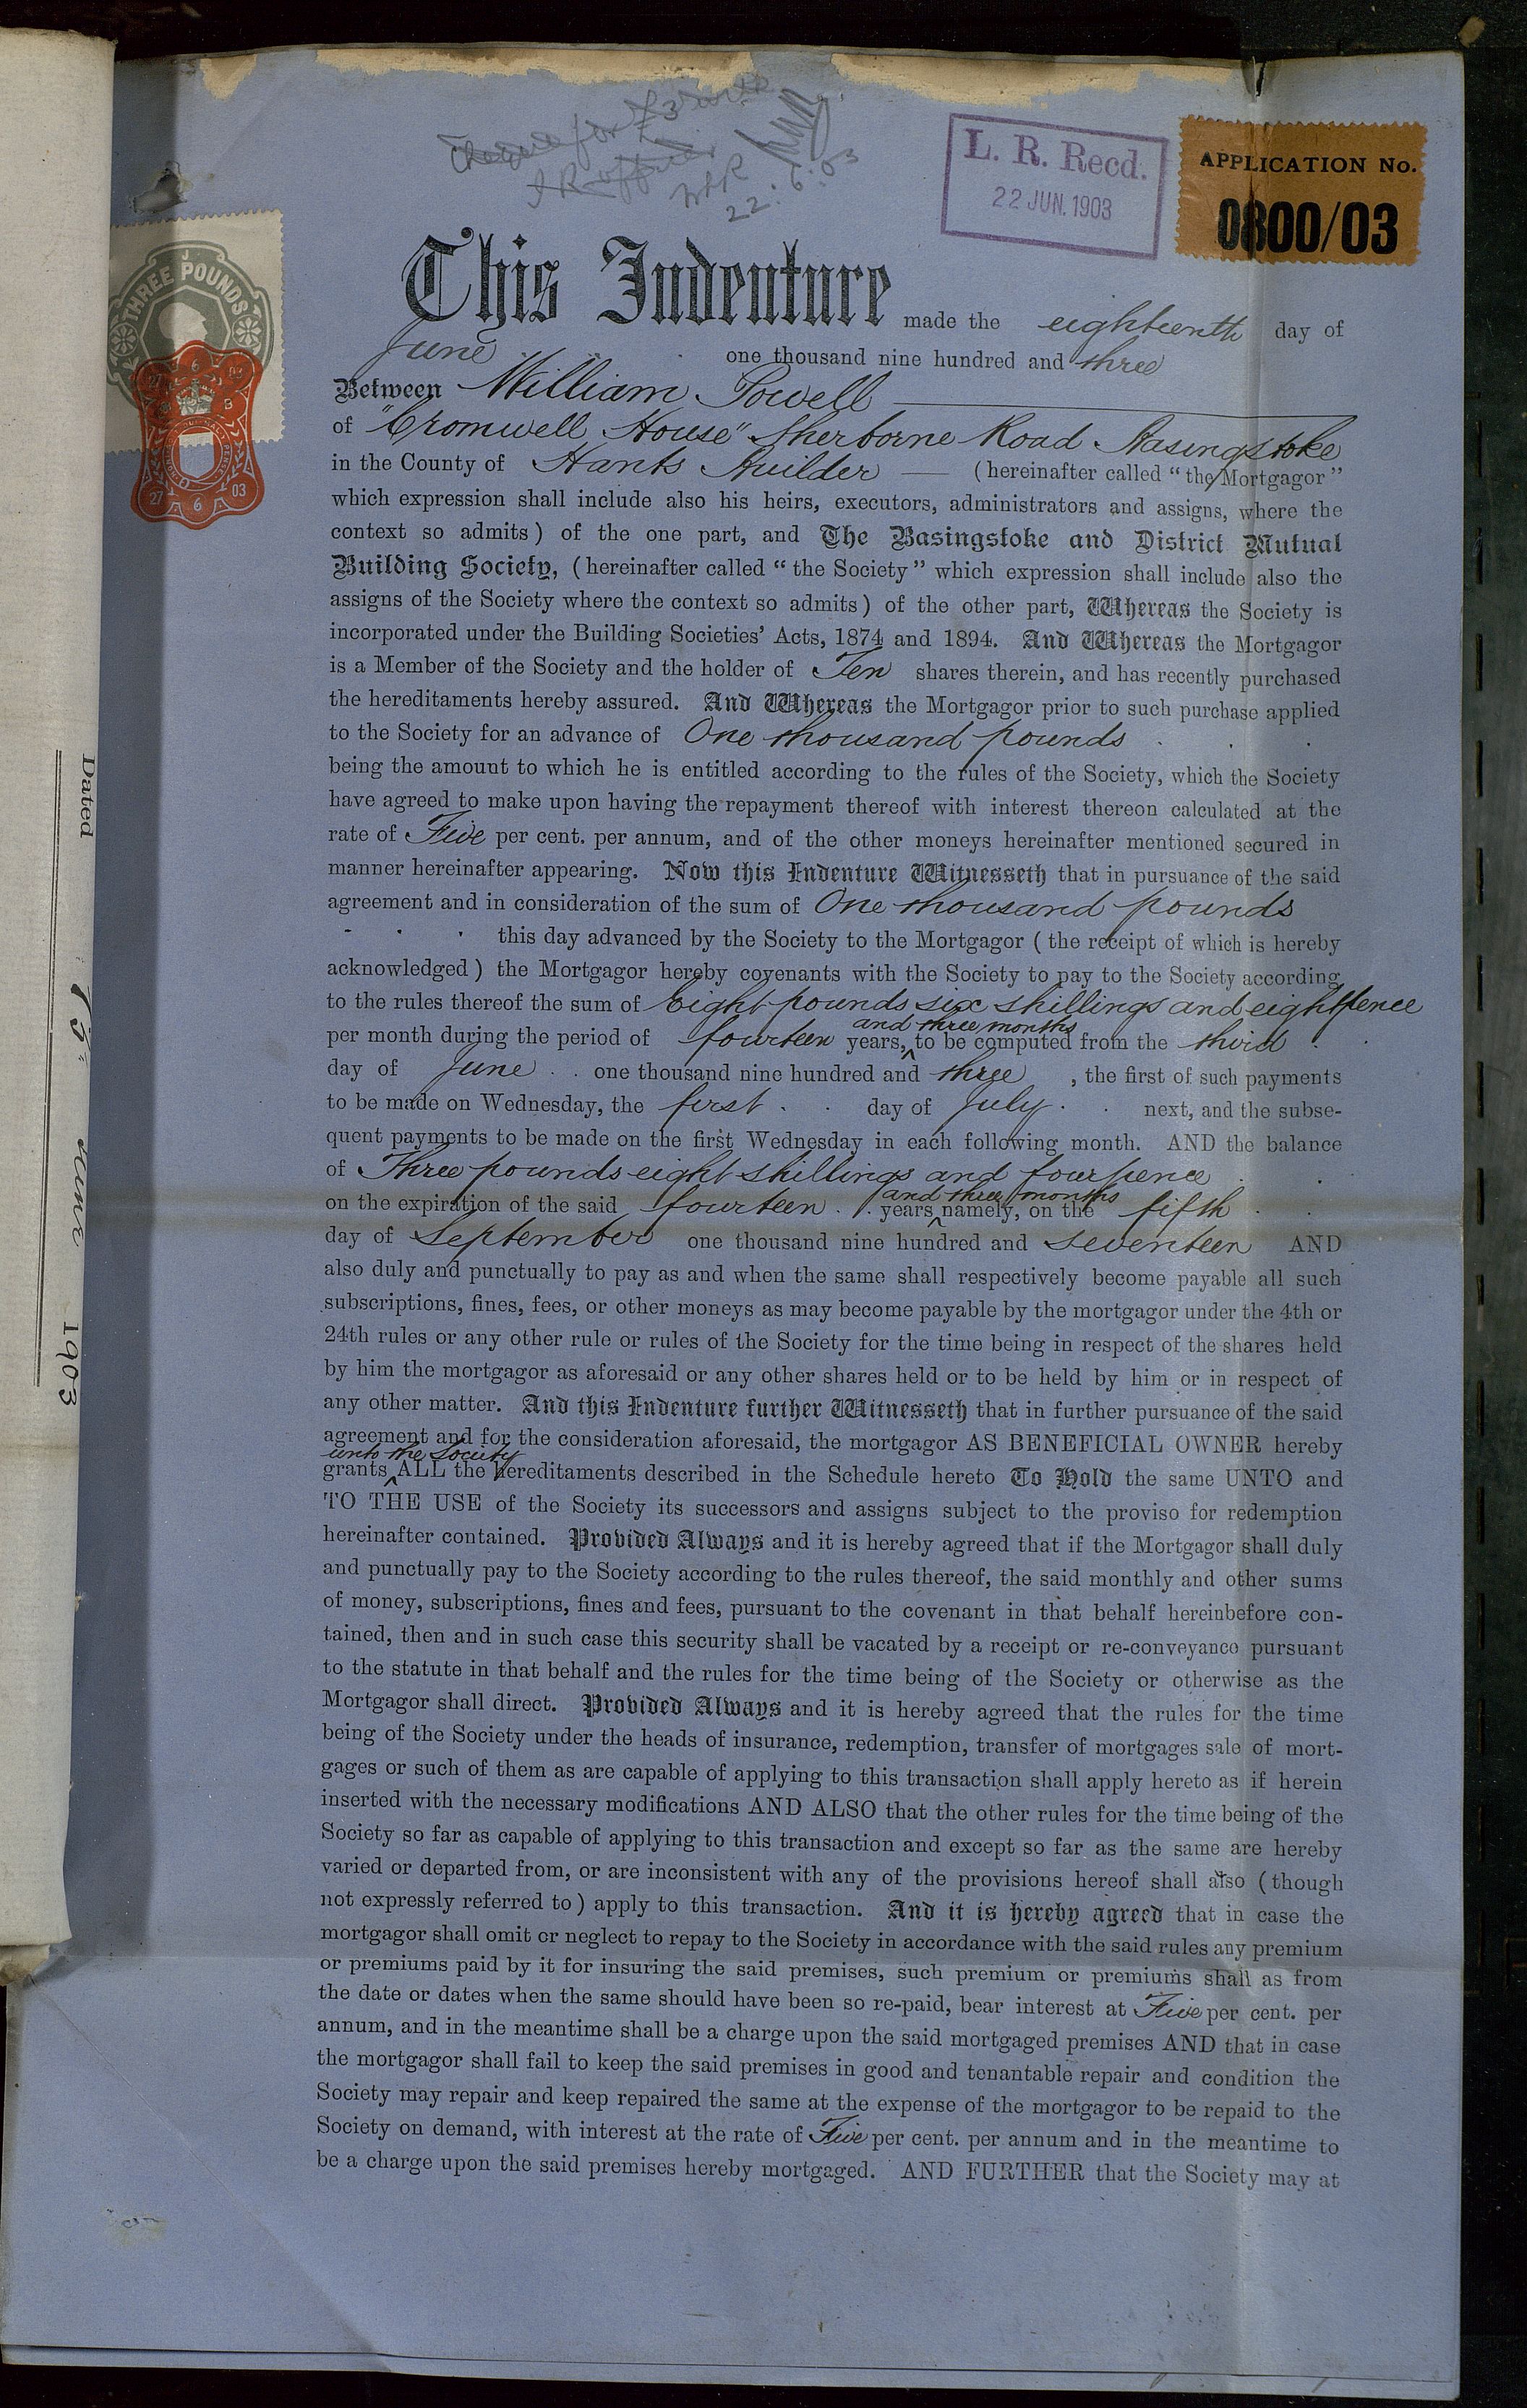 Cheque for £3
22.6.03
L. R. Recd.
22 JUN. 1903
APPLICATION No.
0800/03
THREE POUNDS
27 6 03
This Indenture made the eighteenth day of
June one thousand nine hundred and three
Between William Powell
of "Cromwell House" Sherborne Road Basingstoke
in the County of Hants Builder — (hereinafter called "the Mortgagor"
which expression shall include also his heirs, executors, administrators and assigns, where the
context so admits) of the one part, and The Basingstoke and District Mutual
Building Society, (hereinafter called "the Society" which expression shall include also the
assigns of the Society where the context so admits) of the other part, Whereas the Society is
incorporated under the Building Societies' Acts, 1874 and 1894. And Whereas the Mortgagor
is a Member of the Society and the holder of Ten shares therein, and has recently purchased
the hereditaments hereby assured. And Whereas the Mortgagor prior to such purchase applied
to the Society for an advance of One thousand pounds
being the amount to which he is entitled according to the rules of the Society, which the Society
have agreed to make upon having the repayment thereof with interest thereon calculated at the
rate of Five per cent. per annum, and of the other moneys hereinafter mentioned secured in
manner hereinafter appearing. Now this Indenture Witnesseth that in pursuance of the said
agreement and in consideration of the sum of One thousand pounds
this day advanced by the Society to the Mortgagor (the receipt of which is hereby
acknowledged) the Mortgagor hereby covenants with the Society to pay to the Society according
to the rules thereof the sum of Eight pounds six shillings and eightpence
and three months
per month during the period of fourteen years, to be computed from the third
day of June one thousand nine hundred and three, the first of such payments
to be made on Wednesday, the first day of July next, and the subse-
quent payments to be made on the first Wednesday in each following month. AND the balance
of Three pounds eight shillings and fourpence
and three months
on the expiration of the said fourteen years namely, on the fifth
day of September one thousand nine hundred and seventeen AND
also duly and punctually to pay as and when the same shall respectively become payable all such
subscriptions, fines, fees, or other moneys as may become payable by the mortgagor under the 4th or
24th rules or any other rule or rules of the Society for the time being in respect of the shares held
by him the mortgagor as aforesaid or any other shares held or to be held by him or in respect of
any other matter. And this Indenture further Witnesseth that in further pursuance of the said
agreement and for the consideration aforesaid, the mortgagor AS BENEFICIAL OWNER hereby
unto the Society
grants ALL the hereditaments described in the Schedule hereto To Hold the same UNTO and
TO THE USE of the Society its successors and assigns subject to the proviso for redemption
hereinafter contained. Provided Always and it is hereby agreed that if the Mortgagor shall duly
and punctually pay to the Society according to the rules thereof, the said monthly and other sums
of money, subscriptions, fines and fees, pursuant to the covenant in that behalf hereinbefore con-
tained, then and in such case this security shall be vacated by a receipt or re-conveyance pursuant
to the statute in that behalf and the rules for the time being of the Society or otherwise as the
Mortgagor shall direct. Provided Always and it is hereby agreed that the rules for the time
being of the Society under the heads of insurance, redemption, transfer of mortgages sale of mort-
gages or such of them as are capable of applying to this transaction shall apply hereto as if herein
inserted with the necessary modifications AND ALSO that the other rules for the time being of the
Society so far as capable of applying to this transaction and except so far as the same are hereby
varied or departed from, or are inconsistent with any of the provisions hereof shall also (though
not expressly referred to) apply to this transaction. And it is hereby agreed that in case the
mortgagor shall omit or neglect to repay to the Society in accordance with the said rules any premium
or premiums paid by it for insuring the said premises, such premium or premiums shall as from
the date or dates when the same should have been so re-paid, bear interest at Five per cent. per
annum, and in the meantime shall be a charge upon the said mortgaged premises AND that in case
the mortgagor shall fail to keep the said premises in good and tenantable repair and condition the
Society may repair and keep repaired the same at the expense of the mortgagor to be repaid to the
Society on demand, with interest at the rate of Five per cent. per annum and in the meantime to
be a charge upon the said premises hereby mortgaged. AND FURTHER that the Society may at
Dated June 1903